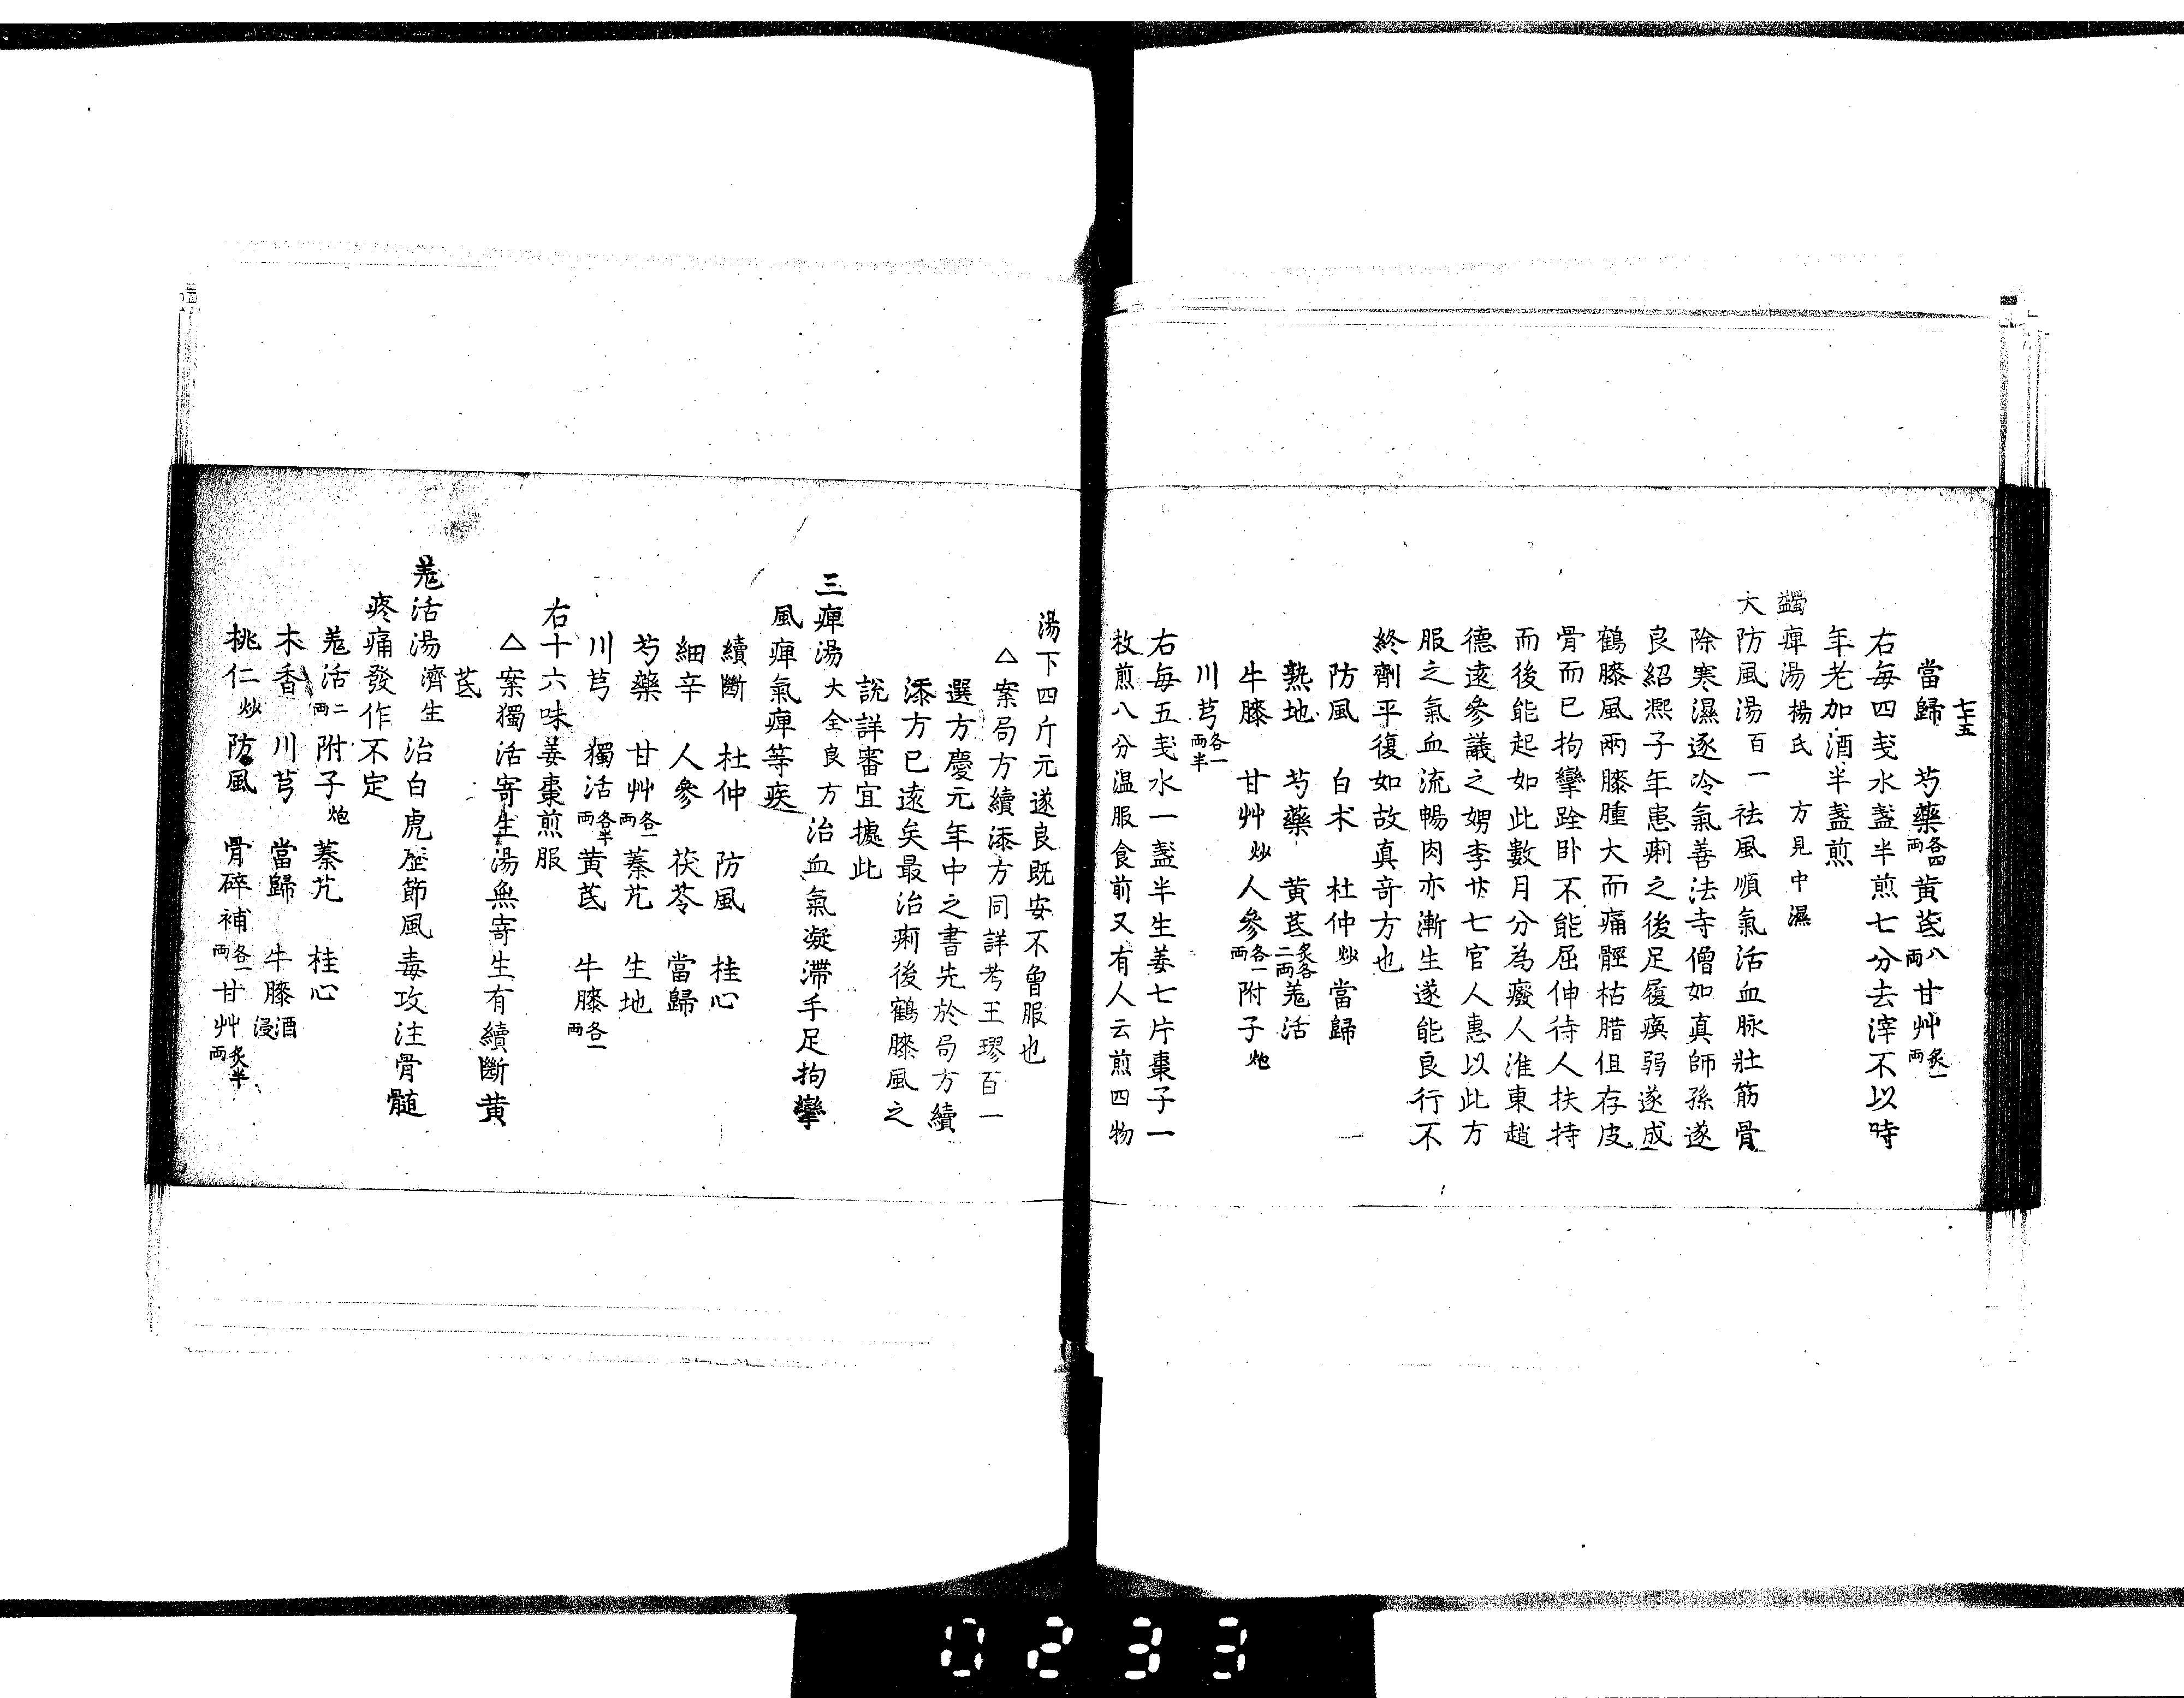 七十五
當歸　芍藥各四兩　黃芪八兩　甘艸炙一兩
右每四戔水盞半煎七分去滓不以時
年老加酒半盞煎
蠲痺湯楊氏　方見中濕
大防風湯百一　祛風順氣活血脉壯筋骨
除寒濕逐冷氣善法寺僧如真師孫遂
良紹熙子年患痢之後足履瘓弱遂成
鶴膝風兩膝腫大而痛脛枯腊但存皮
骨而已拘攣跧卧不能屈伸待人扶持
而後能起如此數月分為癈人淮東趙
德遠參議之甥李廿七官人惠以此方
服之氣血流暢肉亦漸生遂能良行不
終劑平復如故真奇方也
防風　白朮　杜仲炒　當歸
熟地　芍藥　黃芪炙各二兩　羗活
牛膝　甘艸炒　人參各一兩　附子炮
川芎各一兩半
右每五戔水一盞半生姜七片棗子一
枚煎八分温服食前又有人云煎四物
湯下四斤元遂良既安不曾服也
△案局方續添方同詳考王璆百一
選方慶元年中之書先於局方續
添方已遠矣最治痢後鶴膝風之
說詳審宜據此
三痺湯大全良方　治血氣凝滯手足拘攣
風痺氣痺等疾
續斷　杜仲　防風　桂心
細辛　人參　茯苓　當歸
芍藥　甘艸各一兩　蓁艽　生地
川芎　獨活各半兩　黃芪　牛膝各一兩
右十六味姜棗煎服
△案獨活寄生湯無寄生有續斷黃
芪
羗活湯濟生　治白虎歷節風毒攻注骨髄
疼痛發作不定
羗活二兩　附子炮　蓁艽　桂心
木香　川芎　當歸　牛膝酒浸
桃仁炒　防風　骨碎補各一兩　甘艸炙半兩
0233